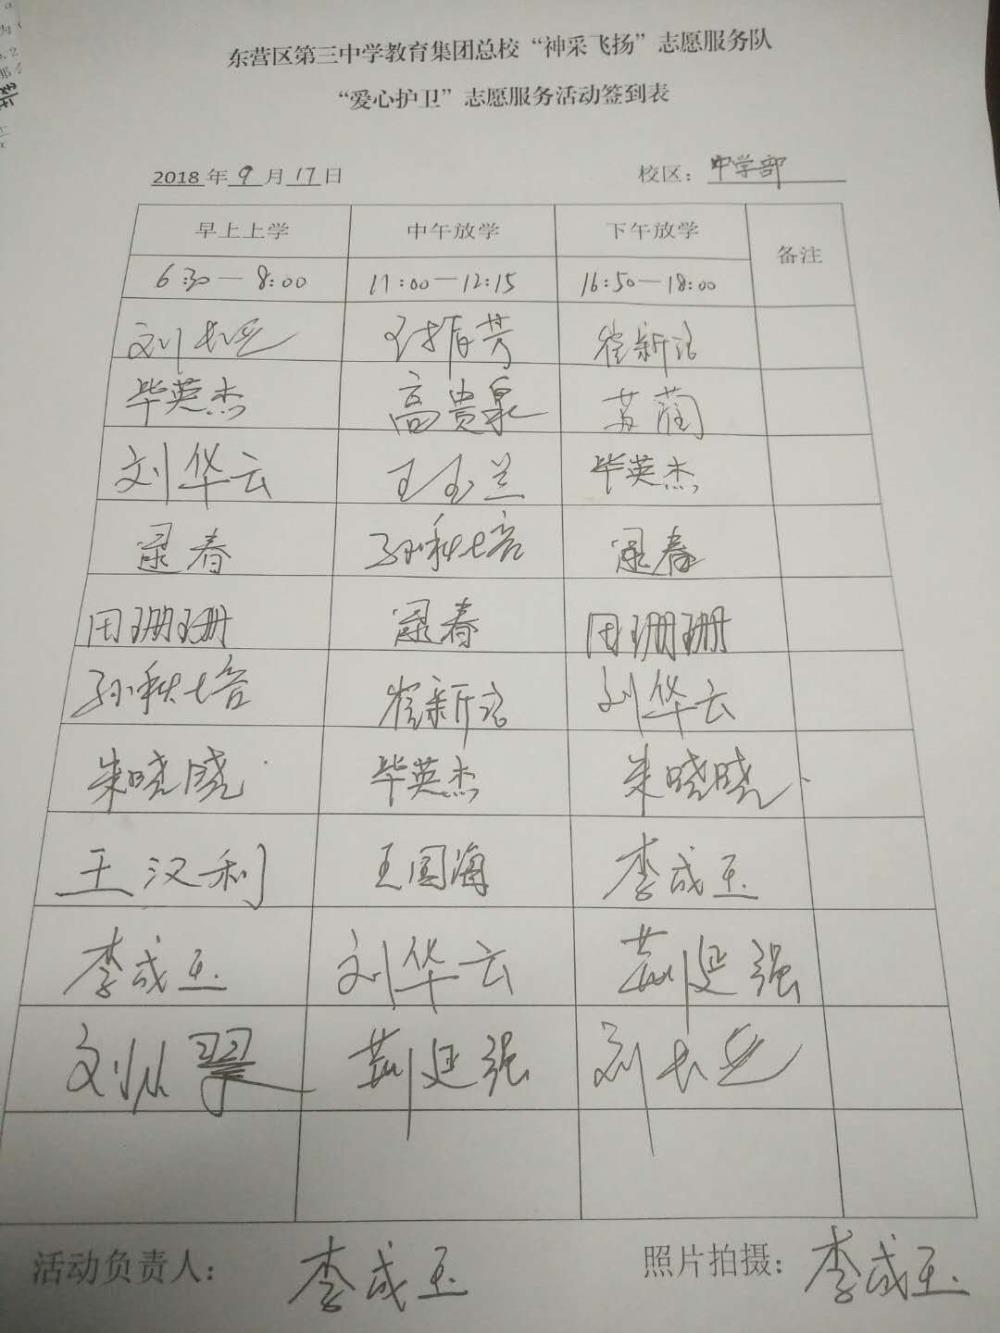 东营区第三中学教育集团总校“神采飞扬”志愿服务队
“爱心护卫”志愿服务活动签到表
2018 年 9 月 17 日 校区：中学部
早上上学 中午放学 下午放学 备注
6:30—8:00 11:00—12:15 16:50—18:00
刘 芳 崔新
毕英杰 高贵泉 苏
刘华云 王玉兰 毕英杰
春 孙秋培 春
田珊珊 春 田珊珊
孙秋培 崔新 刘华云
朱晓晓 毕英杰 朱晓晓
王汉利 王国海 李成玉
李成玉 刘华云 延强
刘 翠 延强 刘
活动负责人： 李成玉 照片拍摄： 李成玉